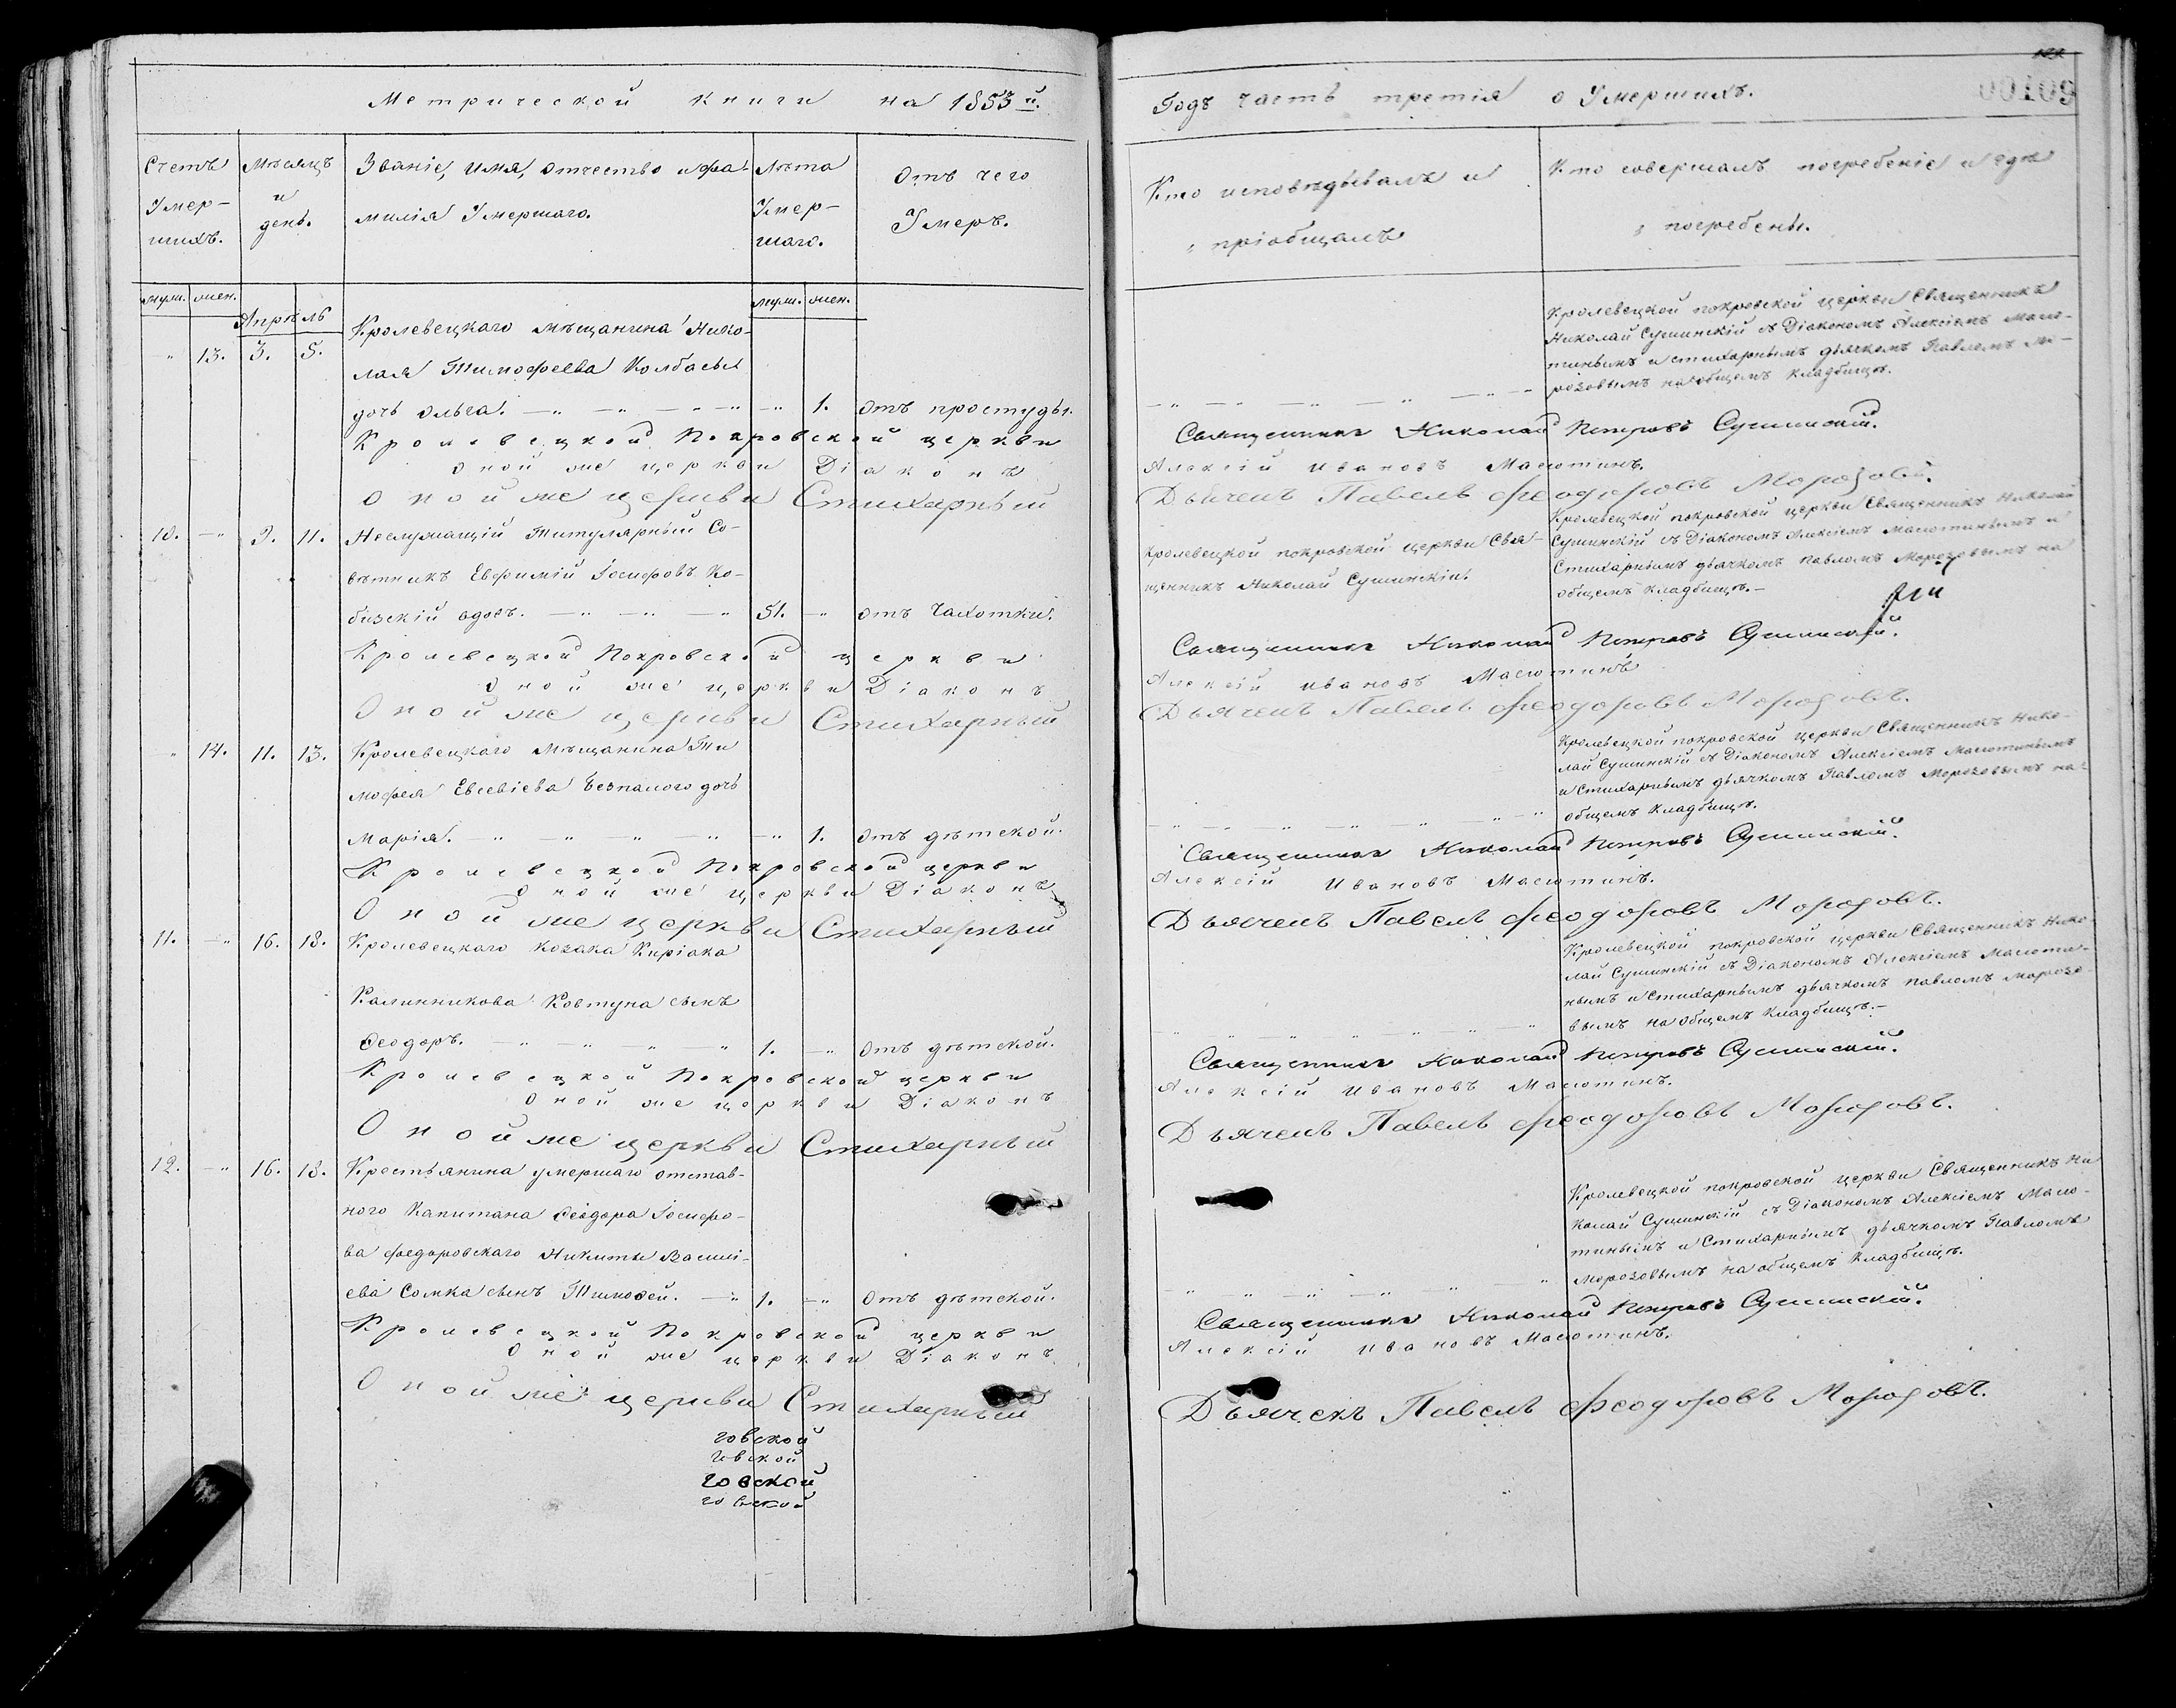 Метрической книги на 1853 й.
Счетъ Умер-
шихъ.
Мѣсяцъ
и
день.
Званіе, имя, отчество и фа-
милія Умершаго.
Лѣта
Умер-
шаго.
Отъ чего
Умеръ.
муж. жен.
Апрѣль
муж. жен.
" 13. 3. 5. Кролевецкаго мѣщанина Нико-
лая Тимофеева Колбасы
дочь Ольга. — " — 1. отъ простуды.
Кролевецкой Покровской церкви
Оной же церкви Діаконъ
Оной же церкви Стихарный
10. — " 9. 11. Неслужащій Титулярный Со-
вѣтникъ Евфимій Іосифовъ Ко-
бизскій вдовъ. — " — 51. — " отъ чахотки.
Кролевецкой Покровской церкви
Оной же церкви Діаконъ
Оной же церкви Стихарный
" 14. 11. 13. Кролевецкаго Мѣщанина Ти
мофея Евсевіева Безпалого дочь
Марія. — " — 1. отъ дѣтской.
Кролевецкой Покровской церкви
Оной же церкви Діаконъ
Оной же церкви Стихарный
11. — " 16. 18. Кролевецкаго козака Киріака
Калинникова Ковтуна сынъ
Ѳеодоръ. — " — 1. — " отъ дѣтской.
Кролевецкой Покровской церкви
Оной же церкви Діаконъ
Оной же церкви Стихарный
12. — " 16. 18. Крестьянина умершаго отстав-
ного Капитана Ѳеодора Іосифо-
ва Федоровскаго Никиты Васили-
ева Сомка сынъ Тимоѳей. — " 1. — " отъ дѣтской.
Кролевецкой Покровской церкви
Оной же церкви Діаконъ
Оной же церкви Стихарный
говской
говской
говской
говской
00109
Годъ часть третія о Умершихъ.
Кто исповѣдывалъ и
пріобщалъ
Кто совершалъ погребеніе и гдѣ
погребены.
Кролевецкой покровской церкви Священникъ
Николай Сушинскій съ Діакономъ Алексіемъ Масю-
тинымъ и стихарнымъ дьячкомъ Павломъ Мо-
розовымъ на общемъ кладбищѣ.
Священникъ Николай Петровъ Сушинскій.
Алексій Ивановъ Масютинъ.
Дьячекъ Павелъ Феодоровъ Морозовъ.
Кролевецкой покровской церкви Свя-
щенникъ Николай Сушинскій.
Кролевецкой покровской церкви Священникъ Николай
Сушинскій съ Діакономъ Алексіемъ Масютинымъ и
Стихарнымъ дьячкомъ Павломъ Морозовымъ на
общемъ кладбищѣ. —
Священникъ Николай Петровъ Сушинскій.
Алексій Ивановъ Масютинъ
Дьячекъ Павелъ Феодоровъ Морозовъ.
Кролевецкой покровской церкви Священникъ Нико-
лай Сушинскій съ Діакономъ Алексіемъ Масютинымъ
и Стихарнымъ дьячкомъ Павломъ Морозовымъ на
общемъ кладбищѣ.
Священникъ Николай Петровъ Сушинскій.
Алексій Ивановъ Масютинъ.
Дьячекъ Павелъ Феодоровъ Морозовъ.
Кролевецкой покровской церкви Священникъ Нико-
лай Сушинскій съ Діакономъ Алексіемъ Масюти-
нымъ и Стихарнымъ дьячкомъ Павломъ Морозо-
вымъ на общемъ кладбищѣ. —
Священникъ Николай Петровъ Сушинскій.
Алексій Ивановъ Масютинъ.
Дьячекъ Павелъ Феодоровъ Морозовъ.
Кролевецкой покровской церкви Священникъ Ни
колай Сушинскій съ Діакономъ Алексіемъ Масю-
тинымъ и Стихарнымъ дьячкомъ Павломъ
Морозовымъ на общемъ кладбищѣ.
Священникъ Николай Петровъ Сушинскій.
Алексій Ивановъ Масютинъ.
Дьячекъ Павелъ Феодоровъ Морозовъ.